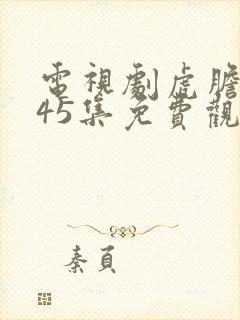 電視劇虎膽
45集免費觀
秦頁